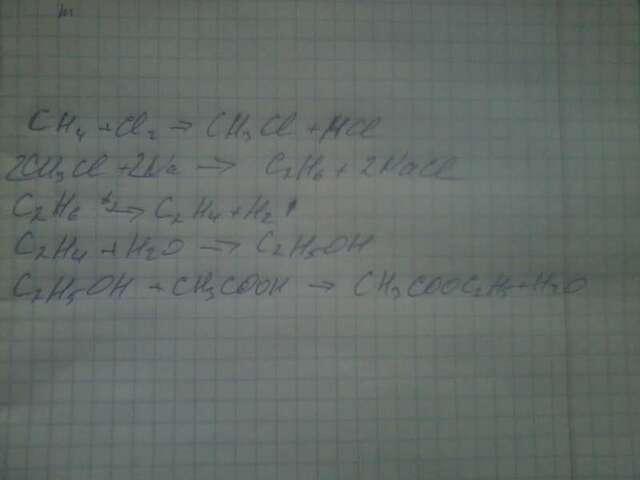 CH₄ + Cl₂ → CH₃Cl + HCl
2CH₃Cl + 2Na → C₂H₆ + 2NaCl
C₂H₆ →^t C₂H₄ + H₂↑
C₂H₄ + H₂O → C₂H₅OH
C₂H₅OH + CH₃COOH → CH₃COOC₂H₅ + H₂O